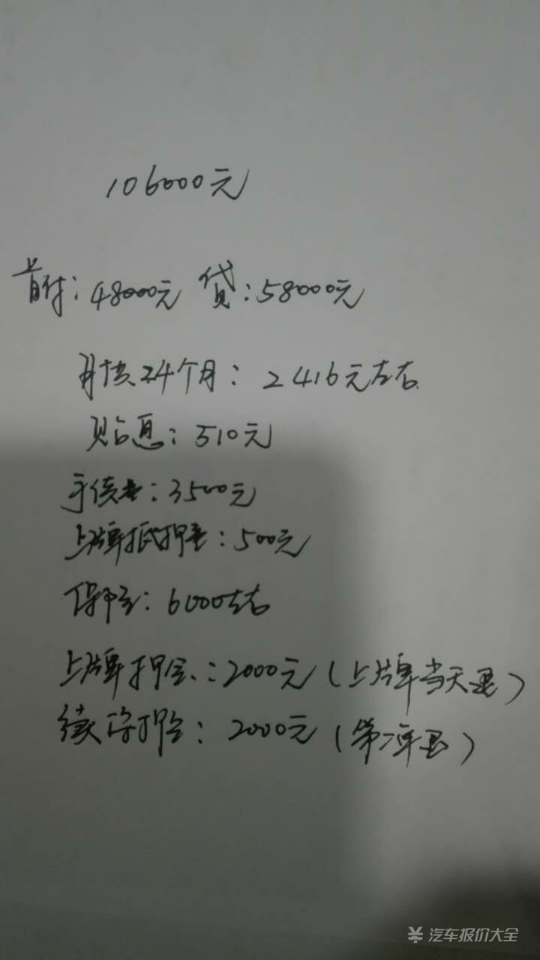 106000元
首付:48000元 贷:58000元
月供24个月:2416元左右
贴息:510元
手续费:3500元
上牌抵押费:500元
保险:6000左右
上牌押金:2000元(上牌当天退)
续保押金:2000元(第二年退)
汽车报价大全